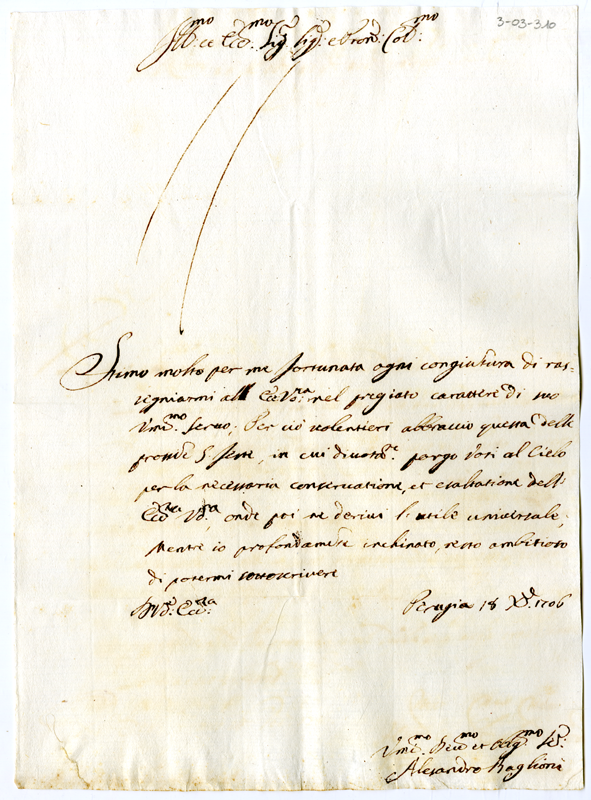 3-03-310
Ill.mo et Ecc.mo Sig.r Sig.r e Pron. Col.mo
Stimo molto per me fortunata ogni congiuntura di ras=
segniarmi all' Ecc. V.ra nel pregiato carattere di suo
Vmi.mo seruo; Per ciò volentieri abbraccio questa delle
prossime S. feste, in cui diuotam.te porgo voti al Cielo
per la necessaria conseruatione, et esaltatione dell'
Ecc.za V.ra onde poi ne deriui l'utile uniuersale,
Mentre io profondamente inchinato, resto ambitioso
di potermi sottoscriuere
Di V. Ecc.za
Perugia 18 Xbre 1706
Vmi.mo Deu.mo et Oblig.mo Se.
Alesandro Baglioni